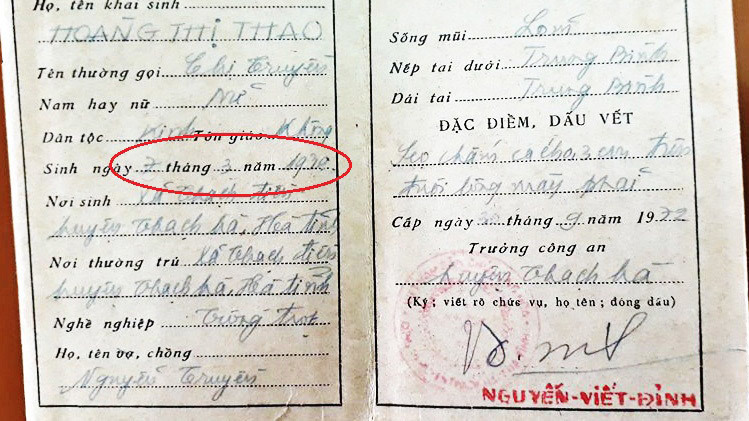 Họ, tên khai sinh
HOÀNG THỊ THAO
Tên thường gọi Chị Truyên
Nam hay nữ Nữ
Dân tộc Kinh Tôn giáo Không
Sinh ngày 7 tháng 3 năm
Nơi sinh Xã Thạch Điền
huyện Thạch Hà, Hà Tĩnh
Nơi thường trú Xã Thạch Điền
huyện Thạch Hà, Hà Tĩnh
Nghề nghiệp Trồng trọt
Họ, tên vợ, chồng
Nguyễn Truyên
Sống mũi Lõm
Nếp tai dưới Trung Bình
Dái tai Trung Bình
ĐẶC ĐIỂM, DẤU VẾT
Sẹo chấm cách 3 cm trên
đuôi lông mày phải
Cấp ngày tháng 9 năm 1972
Trưởng công an
huyện Thạch Hà
(Ký; viết rõ chức vụ, họ tên; đóng dấu)
NGUYỄN-VIẾT-ĐỈNH